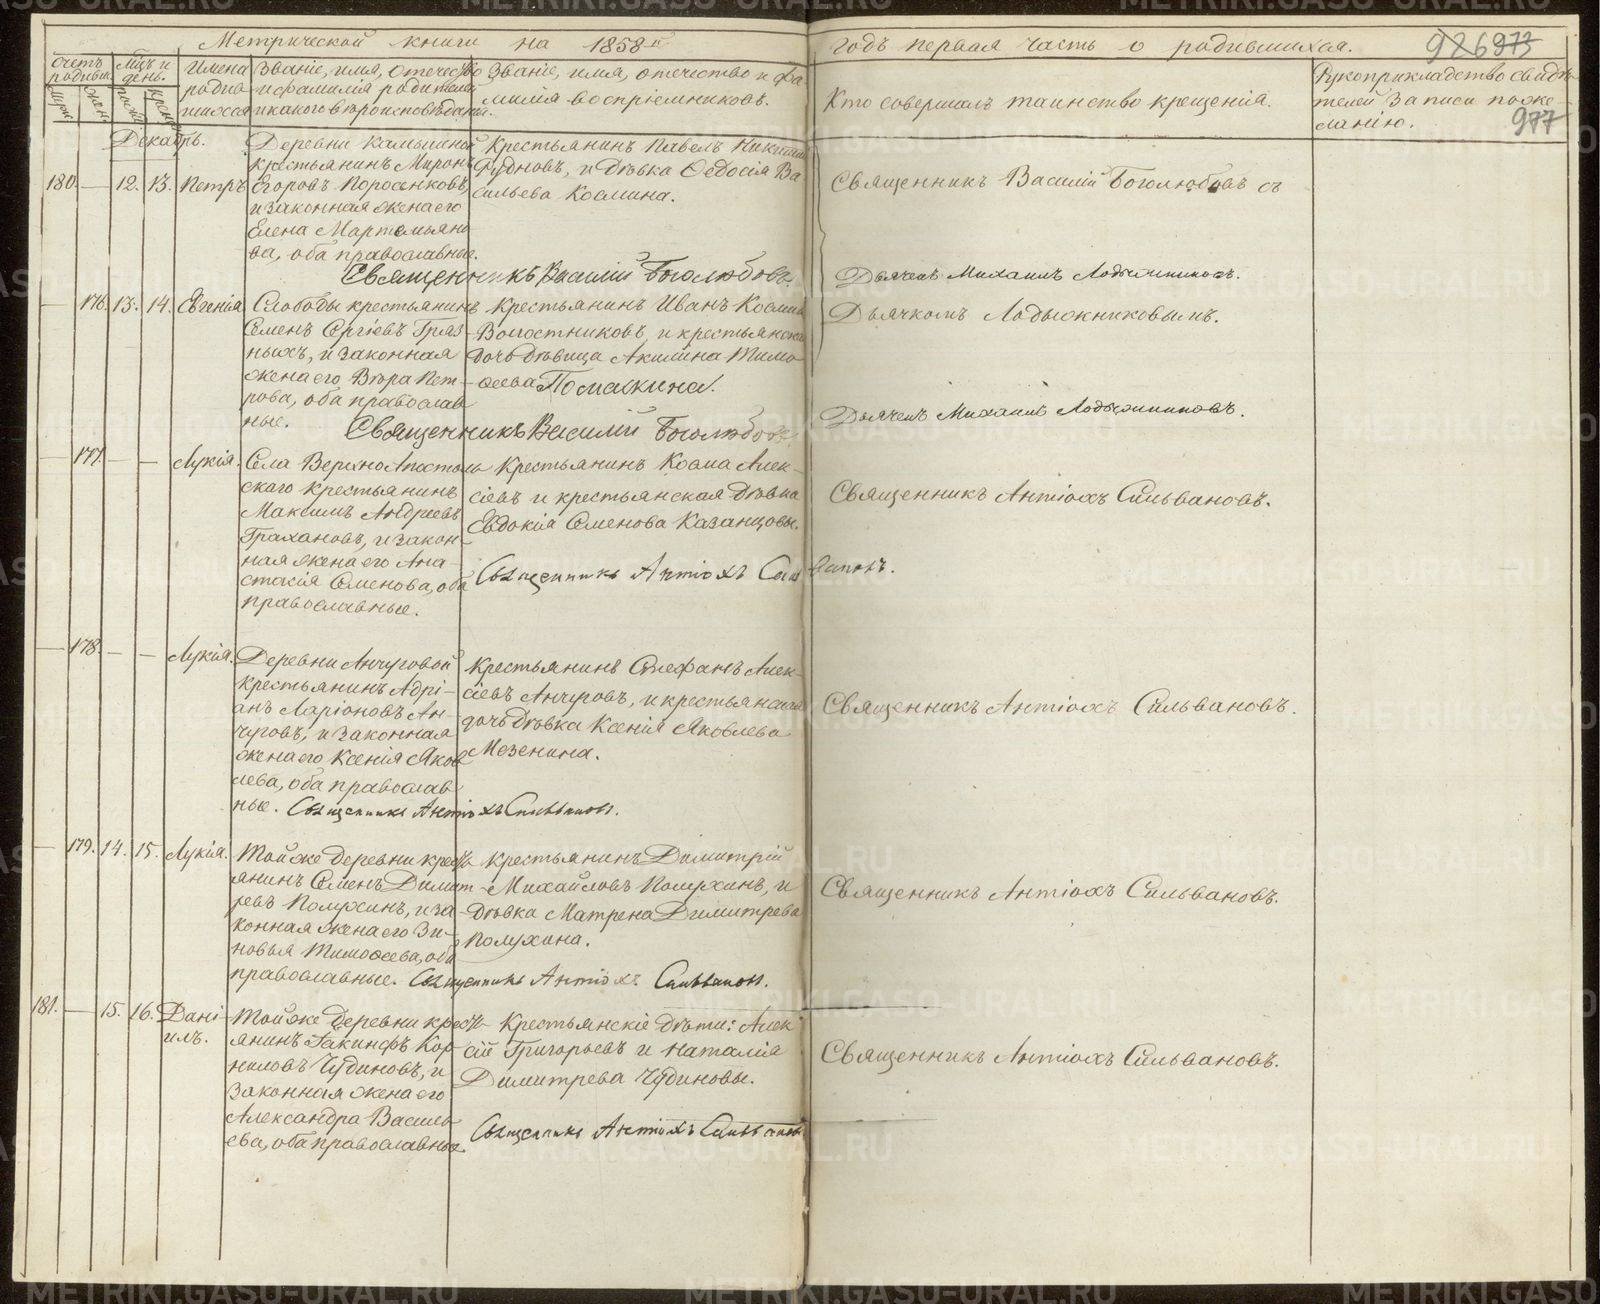 Метрической книги на 1858й годъ первая часть о родившихся.
926 973
977
Счетъ родивш.
Муж.
Жен.
Мцъ и день.
рожд.
крещен.
Имена родившихся
Званіе, имя, отечество и фамилія родителей и какого вѣроисповѣданія.
Званіе, имя, отечество и фамилія воспріемниковъ.
Кто совершалъ таинство крещенія.
Рукоприкладство свидѣтелей записи по желанію.
Декабрь.
180. — 12. 13. Петръ
Деревни
крестьянинъ Миронъ
Егоровъ Поросенковъ,
и законная жена его
Елена Мартемьяно-
ва, оба православные.
Крестьянинъ Павелъ Никитинъ
Рудновъ, и дѣвка Ѳедосія Ва-
сильева Космина.
Священникъ Василій Боголюбовъ съ
Священникъ Василій Боголюбовъ.
Дьячекъ Михаилъ Лодыжниковъ.
— 176. 13. 14. Евгенія
Слободы крестьянинъ
Семенъ Сергіевъ Гряз-
ныхъ, и законная
жена его Вѣра Пет-
рова, оба православ-
ные.
Крестьянинъ Иванъ Косминъ
Волостниковъ, и крестьянская
дочь дѣвица Акилина Тимо-
ѳеева Помаскина.
Дьячкомъ Лодыжниковымъ.
Священникъ Василій Боголюбовъ
Дьячекъ Михаилъ Лодыжниковъ.
— 177. — — Лукія.
Села Верхно Апостоль-
скаго крестьянинъ
Максимъ Андреевъ
Грахановъ, и закон-
ная жена его Ана-
стасія Семенова, оба
православные.
Крестьянинъ Косма Алек-
сіевъ и крестьянская дѣвка
Евдокія Семенова Казанцовы.
Священникъ Антіохъ Сильвановъ.
Священникъ Антіохъ Сильвановъ.
— 178. — — Лукія.
Деревни Анчуговой
крестьянинъ Адрі-
анъ Ларіоновъ Ан-
чуговъ, и законная
жена его Ксенія Яков-
лева, оба православ-
ные. Священникъ Антіохъ Сильвановъ.
Крестьянинъ Стефанъ Алек-
сіевъ Анчуговъ, и крестьянская
дочь дѣвка Ксенія Яковлева
Мезенина.
Священникъ Антіохъ Сильвановъ.
— 179. 14. 15. Лукія.
Той же деревни кресть-
янинъ Семенъ Димит-
ревъ Полухинъ, и за-
конная жена его Зи-
новья Тимоѳеева, оба
православные. Священникъ Антіохъ Сильвановъ.
Крестьянинъ Димитрій
Михайловъ Полухинъ, и
дѣвка Матрена Димитрева
Полухина.
Священникъ Антіохъ Сильвановъ.
181. — 15. 16. Дані-
илъ.
Той же деревни кресть-
янинъ Іакинфъ Кор-
ниловъ Чудиновъ, и
законная жена его
Александра Василь-
ева, оба православные.
Крестьянскіе дѣти: Алек-
сій Григорьевъ и Наталія
Димитрева Чудиновы.
Священникъ Антіохъ Сильвановъ
Священникъ Антіохъ Сильвановъ.
METRIKI.GASO-URAL.RU